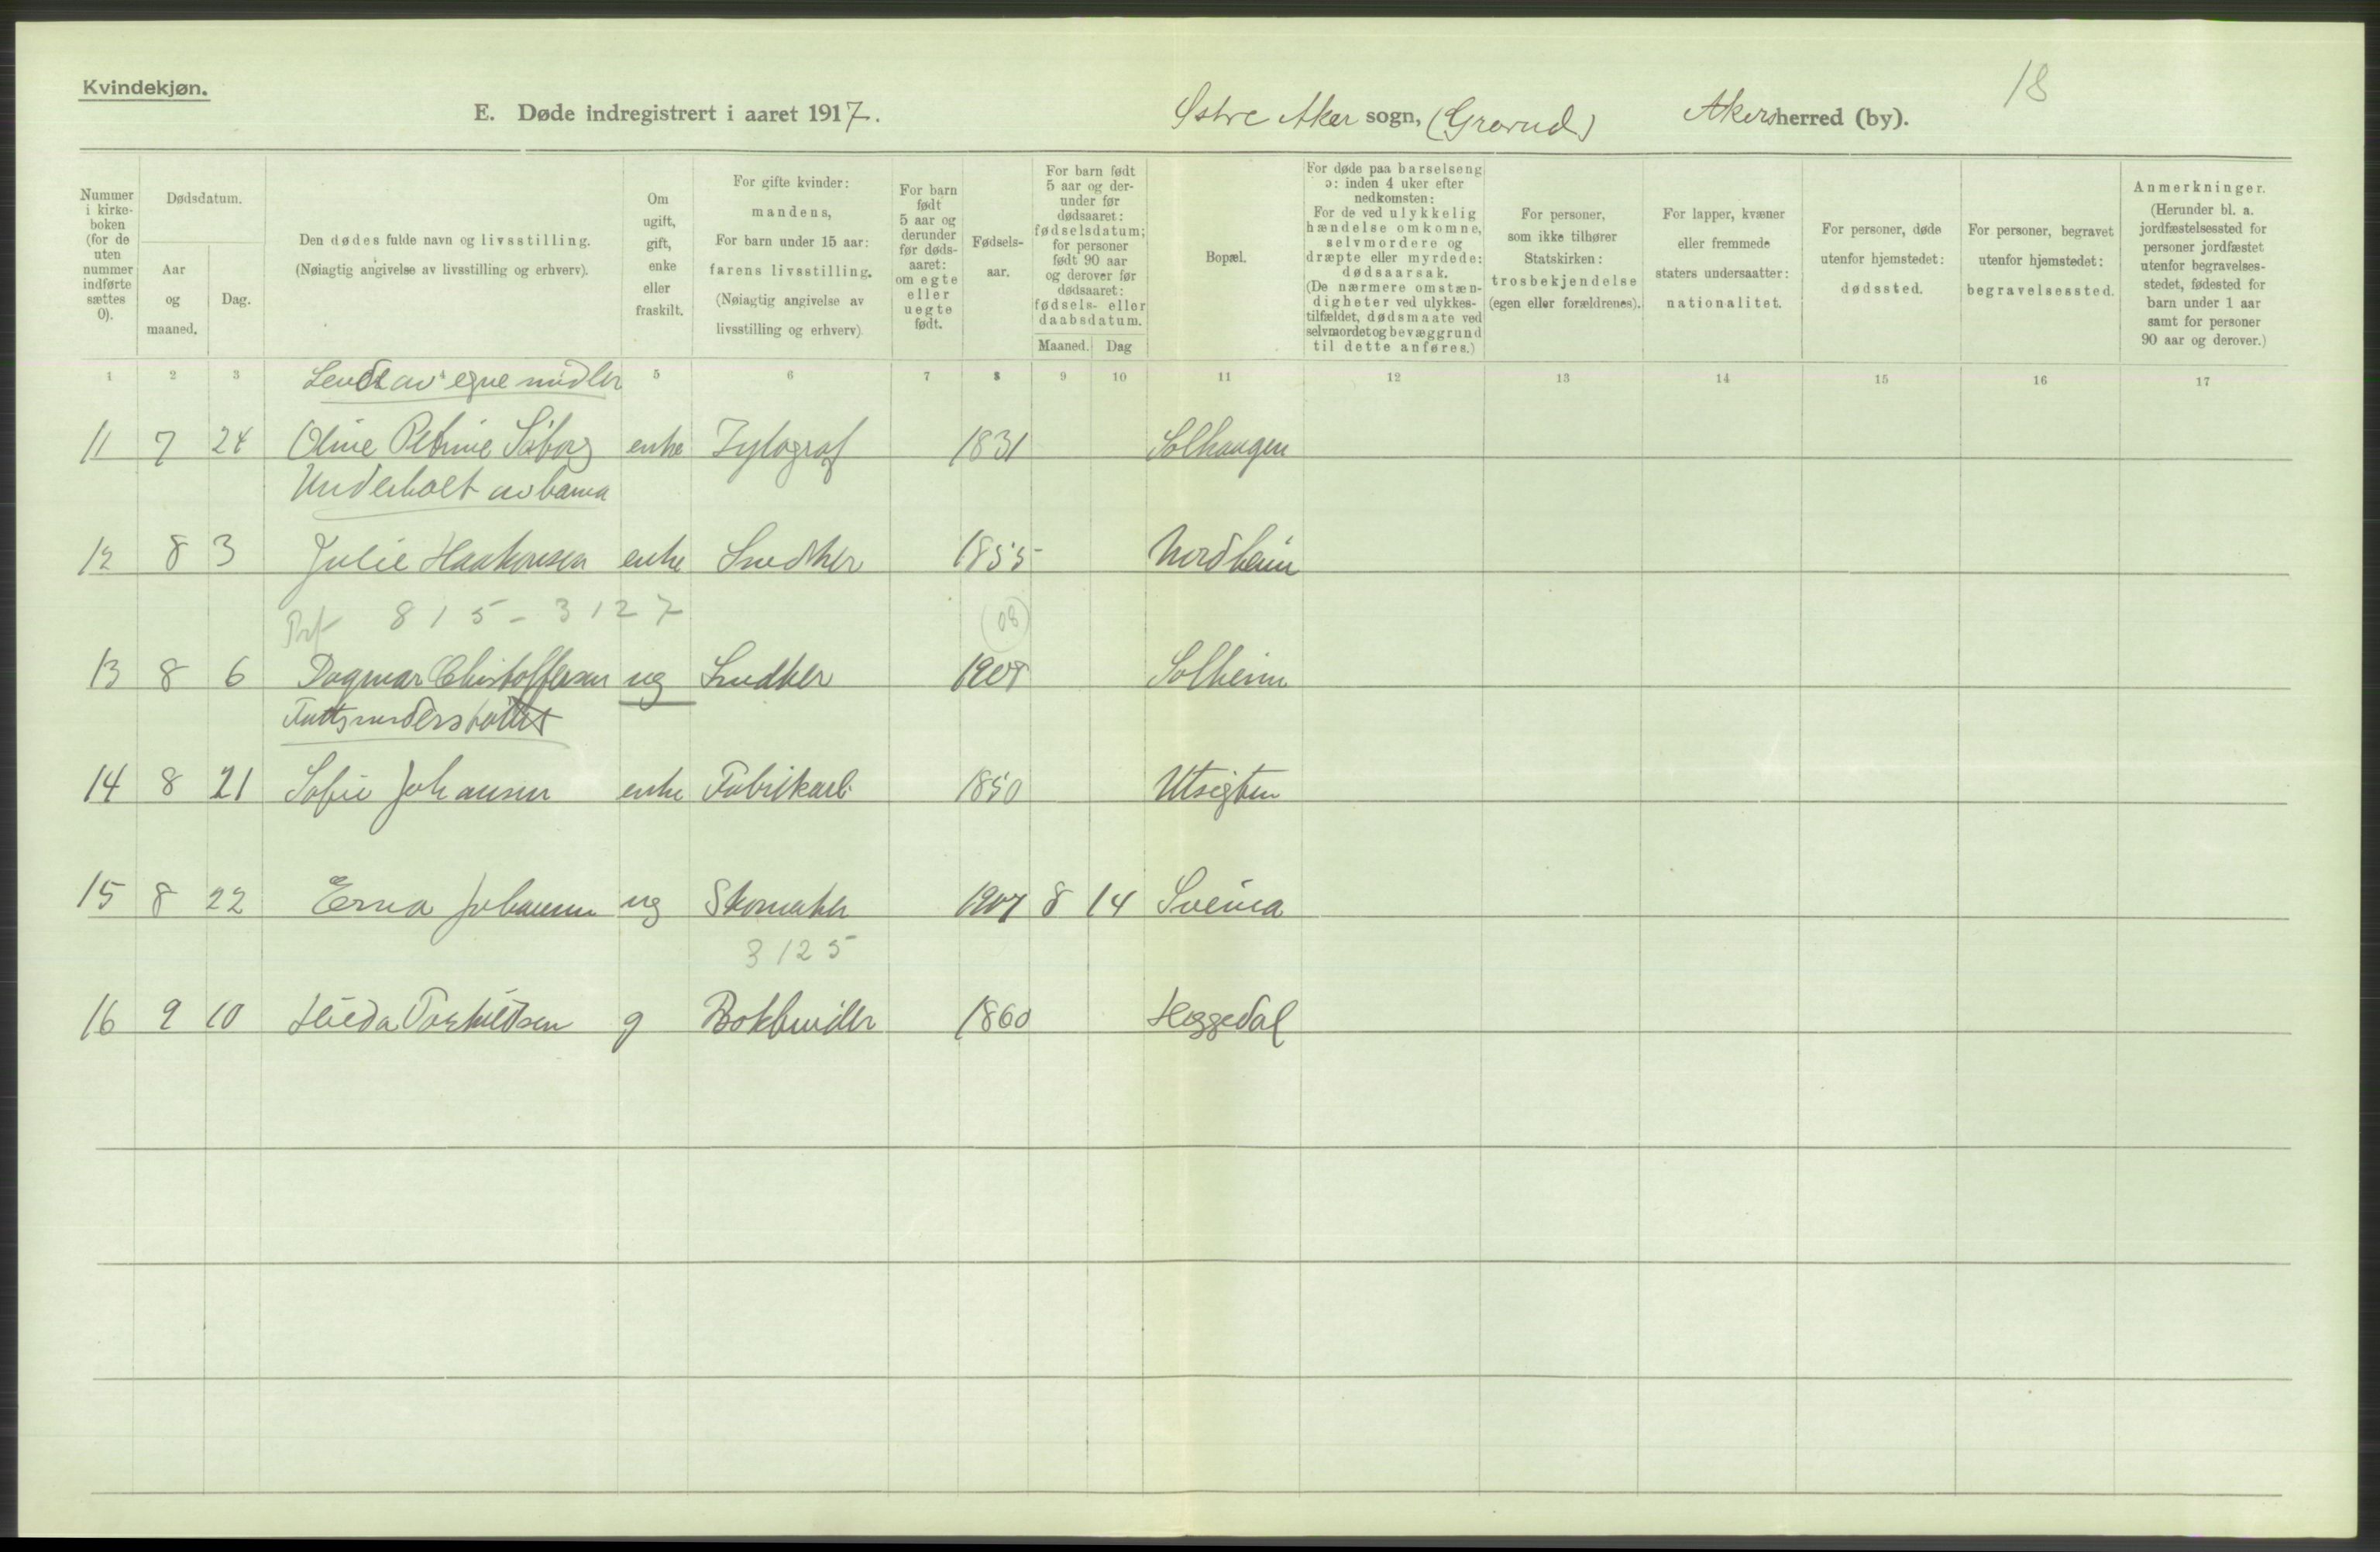 Kvindekjøn.
18
E. Døde indregistrert i aaret 1917. Østre Aker sogn, (Grorud) Akers herred (by).
Nummer i kirke-boken (for de uten nummer indførte sættes 0).
Dødsdatum.
Aar og maaned.
Dag.
Den dødes fulde navn og livsstilling.
(Nøiagtig angivelse av livsstilling og erhverv).
Om ugift, gift, enke eller fraskilt.
For gifte kvinder: mandens,
For barn under 15 aar: farens livsstilling.
(Nøiagtig angivelse av livsstilling og erhverv)
For barn født 5 aar og derunder før døds-aaret: om egte eller uegte født.
Fødsels-aar.
For barn født 5 aar og der-under før dødsaaret: fødselsdatum; for personer født 90 aar og derover før dødsaaret: fødsels- eller daabsdatum.
Maaned. Dag
Bopæl.
For døde paa barselseng ɔ: inden 4 uker efter nedkomsten:
For de ved ulykkelig hændelse omkomne, selvmordere og dræpte eller myrdede: dødsaarsak.
(De nærmere omstæn-digheter ved ulykkes-tilfældet, dødsmaate ved selvmordet og bevæggrund til dette anføres.)
For personer, som ikke tilhører Statskirken: trosbekjendelse (egen eller forældrenes).
For lapper, kvæner eller fremmede staters undersaatter: nationalitet.
For personer, døde utenfor hjemstedet: dødssted.
For personer, begravet utenfor hjemstedet: begravelsessted.
Anmerkninger.
(Herunder bl. a. jordfæstelsessted for personer jordfæstet utenfor begravelses-stedet, fødested for barn under 1 aar samt for personer 90 aar og derover.)
1 2 3 5 6 7 8 9 10 11 12 13 14 15 16 17
Levde av egne midler
11 7 24 Oline Petrine Siborg enke Xylograf 1831 Solhaugen
Underholt av barna
12 8 3 Julie Haakonsen enke Snedker 1855 Nordheim
815-3127 (08)
13 8 6 Dagmar Christoffersen ug Snedker 1908 Solheim
Fattigunderstøttet
14 8 21 Sofie Johansen enke Fabrikarb. 1850 Utsigten
15 8 22 Erna Johansen ug Skomaker 1907 8 14 Svenea
3125
16 9 10 Hilda Torkildsen g Bokbinder 1860 Heggedal